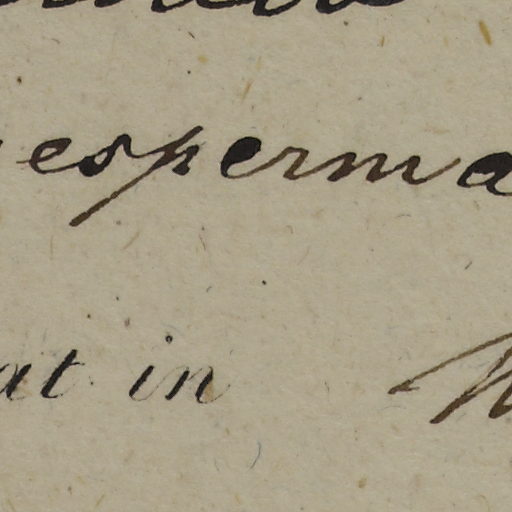 esperma
at in